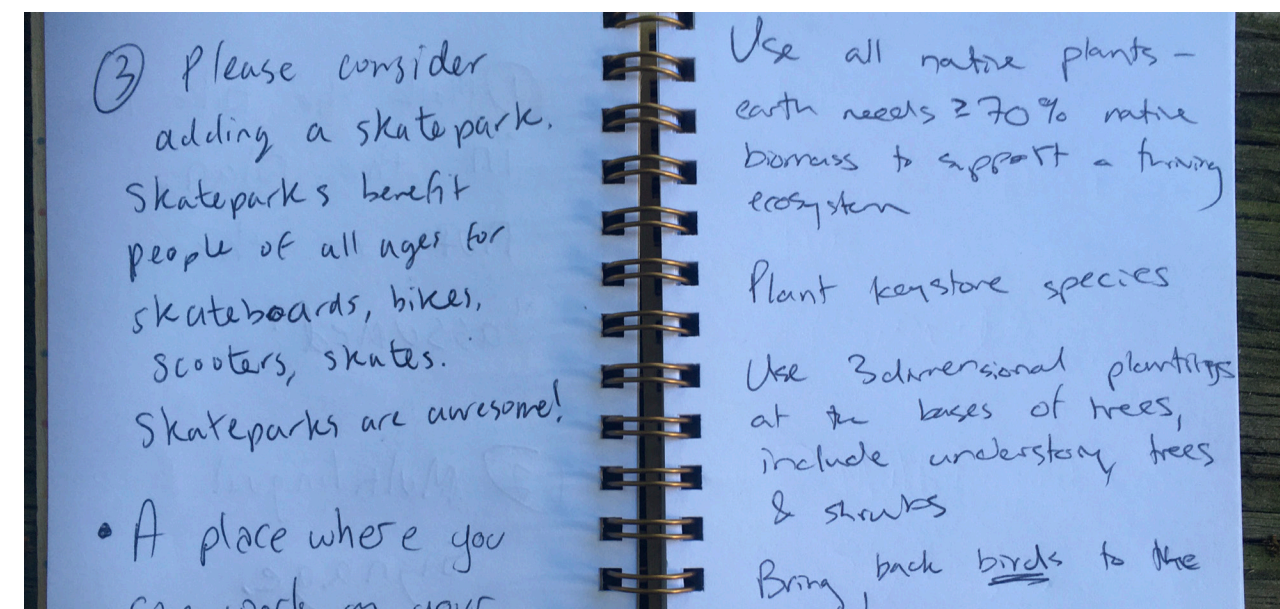 ③ Please consider
adding a skatepark.
Skateparks benefit
people of all ages for
skateboards, bikes,
scooters, skates.
Skateparks are awesome!
• A place where you
can work on your
Use all native plants -
earth needs ≥ 70% native
biomass to support a thriving
ecosystem
Plant keystone species
Use 3dimensional plantings
at the bases of trees,
include understory trees
& shrubs
Bring back birds to the